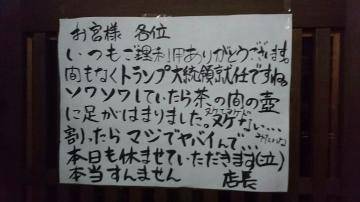 お客様 各位
いつもご理利用ありがとうございます。
間もなくトランプ大統領就任ですね。
ソワソワしていたら茶の間の壺
に足がはまりました。ヌケない…
割ったらマジでヤバイんで…
本日も休ませていただきます(泣)
本当すんません 店長